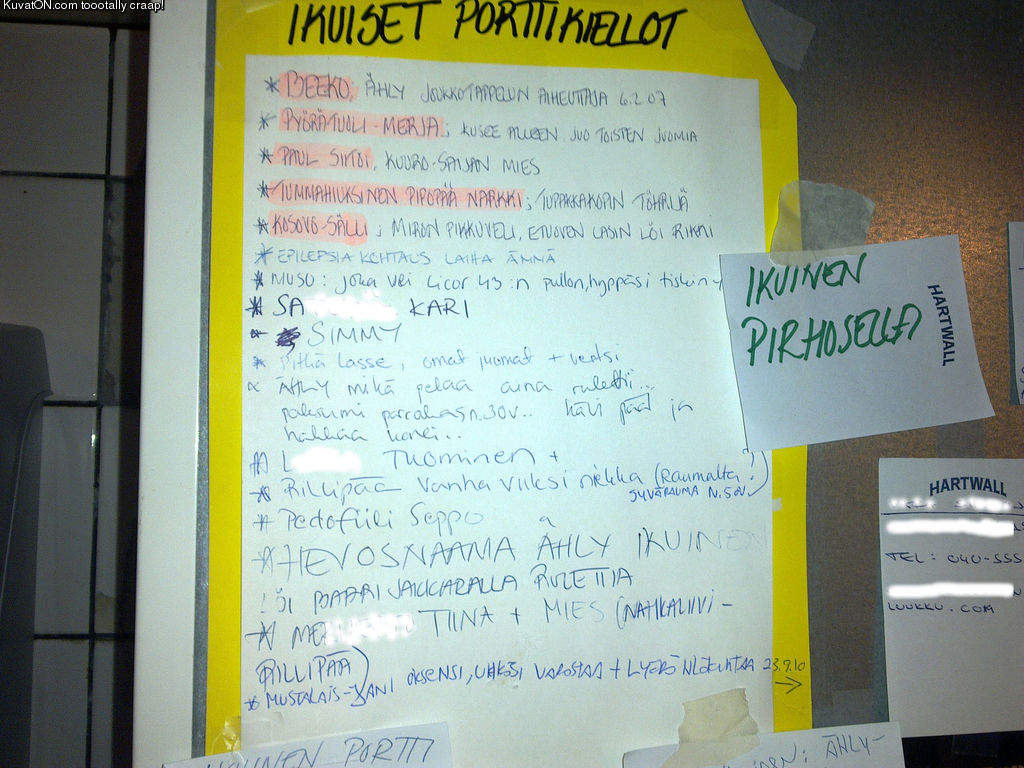 KuvatON.com toootally craap!
IKUISET PORTTIKIELLOT
* BEEKO, ÄHLY JOUKKOTAPPELUN AIHEUTTAJA 6.2.07
* PYÖRÄTUOLI-MERJA; KUSEE ALLEEN JUO TOISTEN JUOMIA
* PAUL SIITOI, KUURO-SAIJAN MIES
* TUMMAHIUKSINEN PIPOPÄÄ NARKKI; TUPAKKAKOPIN TÖHRIJÄ
* KOSOVO-SÄLLI; MIRON PIKKUVELI, ETUOVEN LASIN LÖI RIKKI
* EPILEPSIA KOHTAUS LAIHA ÄMMÄ
* MUSU: joka vei Licor 43:n pullon, hyppäsi tiskin y
* SA KARI
* SIMMY
* Pitkä Lasse, omat juomat +
* ÄHLY mikä pelaa aina rulettii...
paksumi parrakas, n. 30v.. käsi pääl ja
hakkaa konei..
L TUOMINEN +
* Rillipää vanha viiksi niekka (Raumalta?)
SYVÄRAUMA N. 50v
* Pedofiili Seppo
* HEVOSNAAMA ÄHLY IKUINEN
LÖI PAAPAN JAKKARALLA RULETTIA
* ME TIINA + MIES (NAHKALIIVI-
RILLIPÄÄ)
* MUSTALAIS-JANI OKSENSI, UHKASI VARASTAA + LYÖDÄ 23.9.10
→
IKUINEN
PIRHOSELLA
HARTWALL
HARTWALL
TEL: 040-555
LUUKKU.COM
IKUINEN PORTTI
ÄHLY-